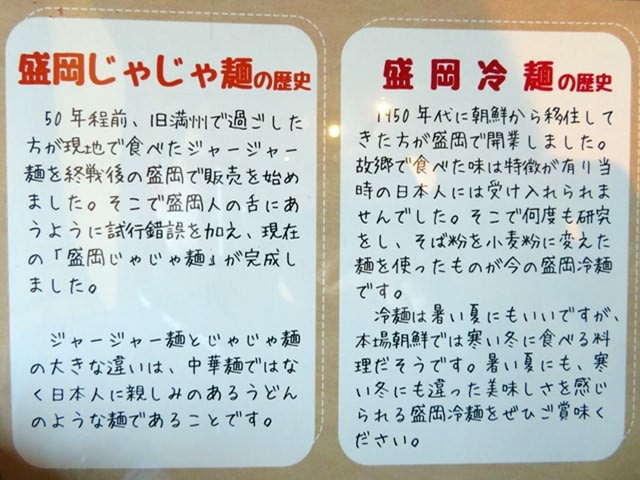 盛岡じゃじゃ麺の歴史
50年程前、旧満州で過ごした
方が現地で食べたジャージャー
麺を終戦後の盛岡で販売を始め
ました。そこで盛岡人の舌にあ
うように試行錯誤を加え、現在
の「盛岡じゃじゃ麺」が完成し
ました。
ジャージャー麺とじゃじゃ麺
の大きな違いは、中華麺ではな
く日本人に親しみのあるうどん
のような麺であることです。
盛岡冷麺の歴史
1950年代に朝鮮から移住して
きた方が盛岡で開業しました。
故郷で食べた味は特徴が有り当
時の日本人には受け入れられま
せんでした。そこで何度も研究
をし、そば粉を小麦粉に変えた
麺を使ったものが今の盛岡冷麺
です。
冷麺は暑い夏にもいいですが、
本場朝鮮では寒い冬に食べる料
理だそうです。暑い夏にも、寒
い冬にも違った美味しさを感じ
られる盛岡冷麺をぜひご賞味く
ださい。